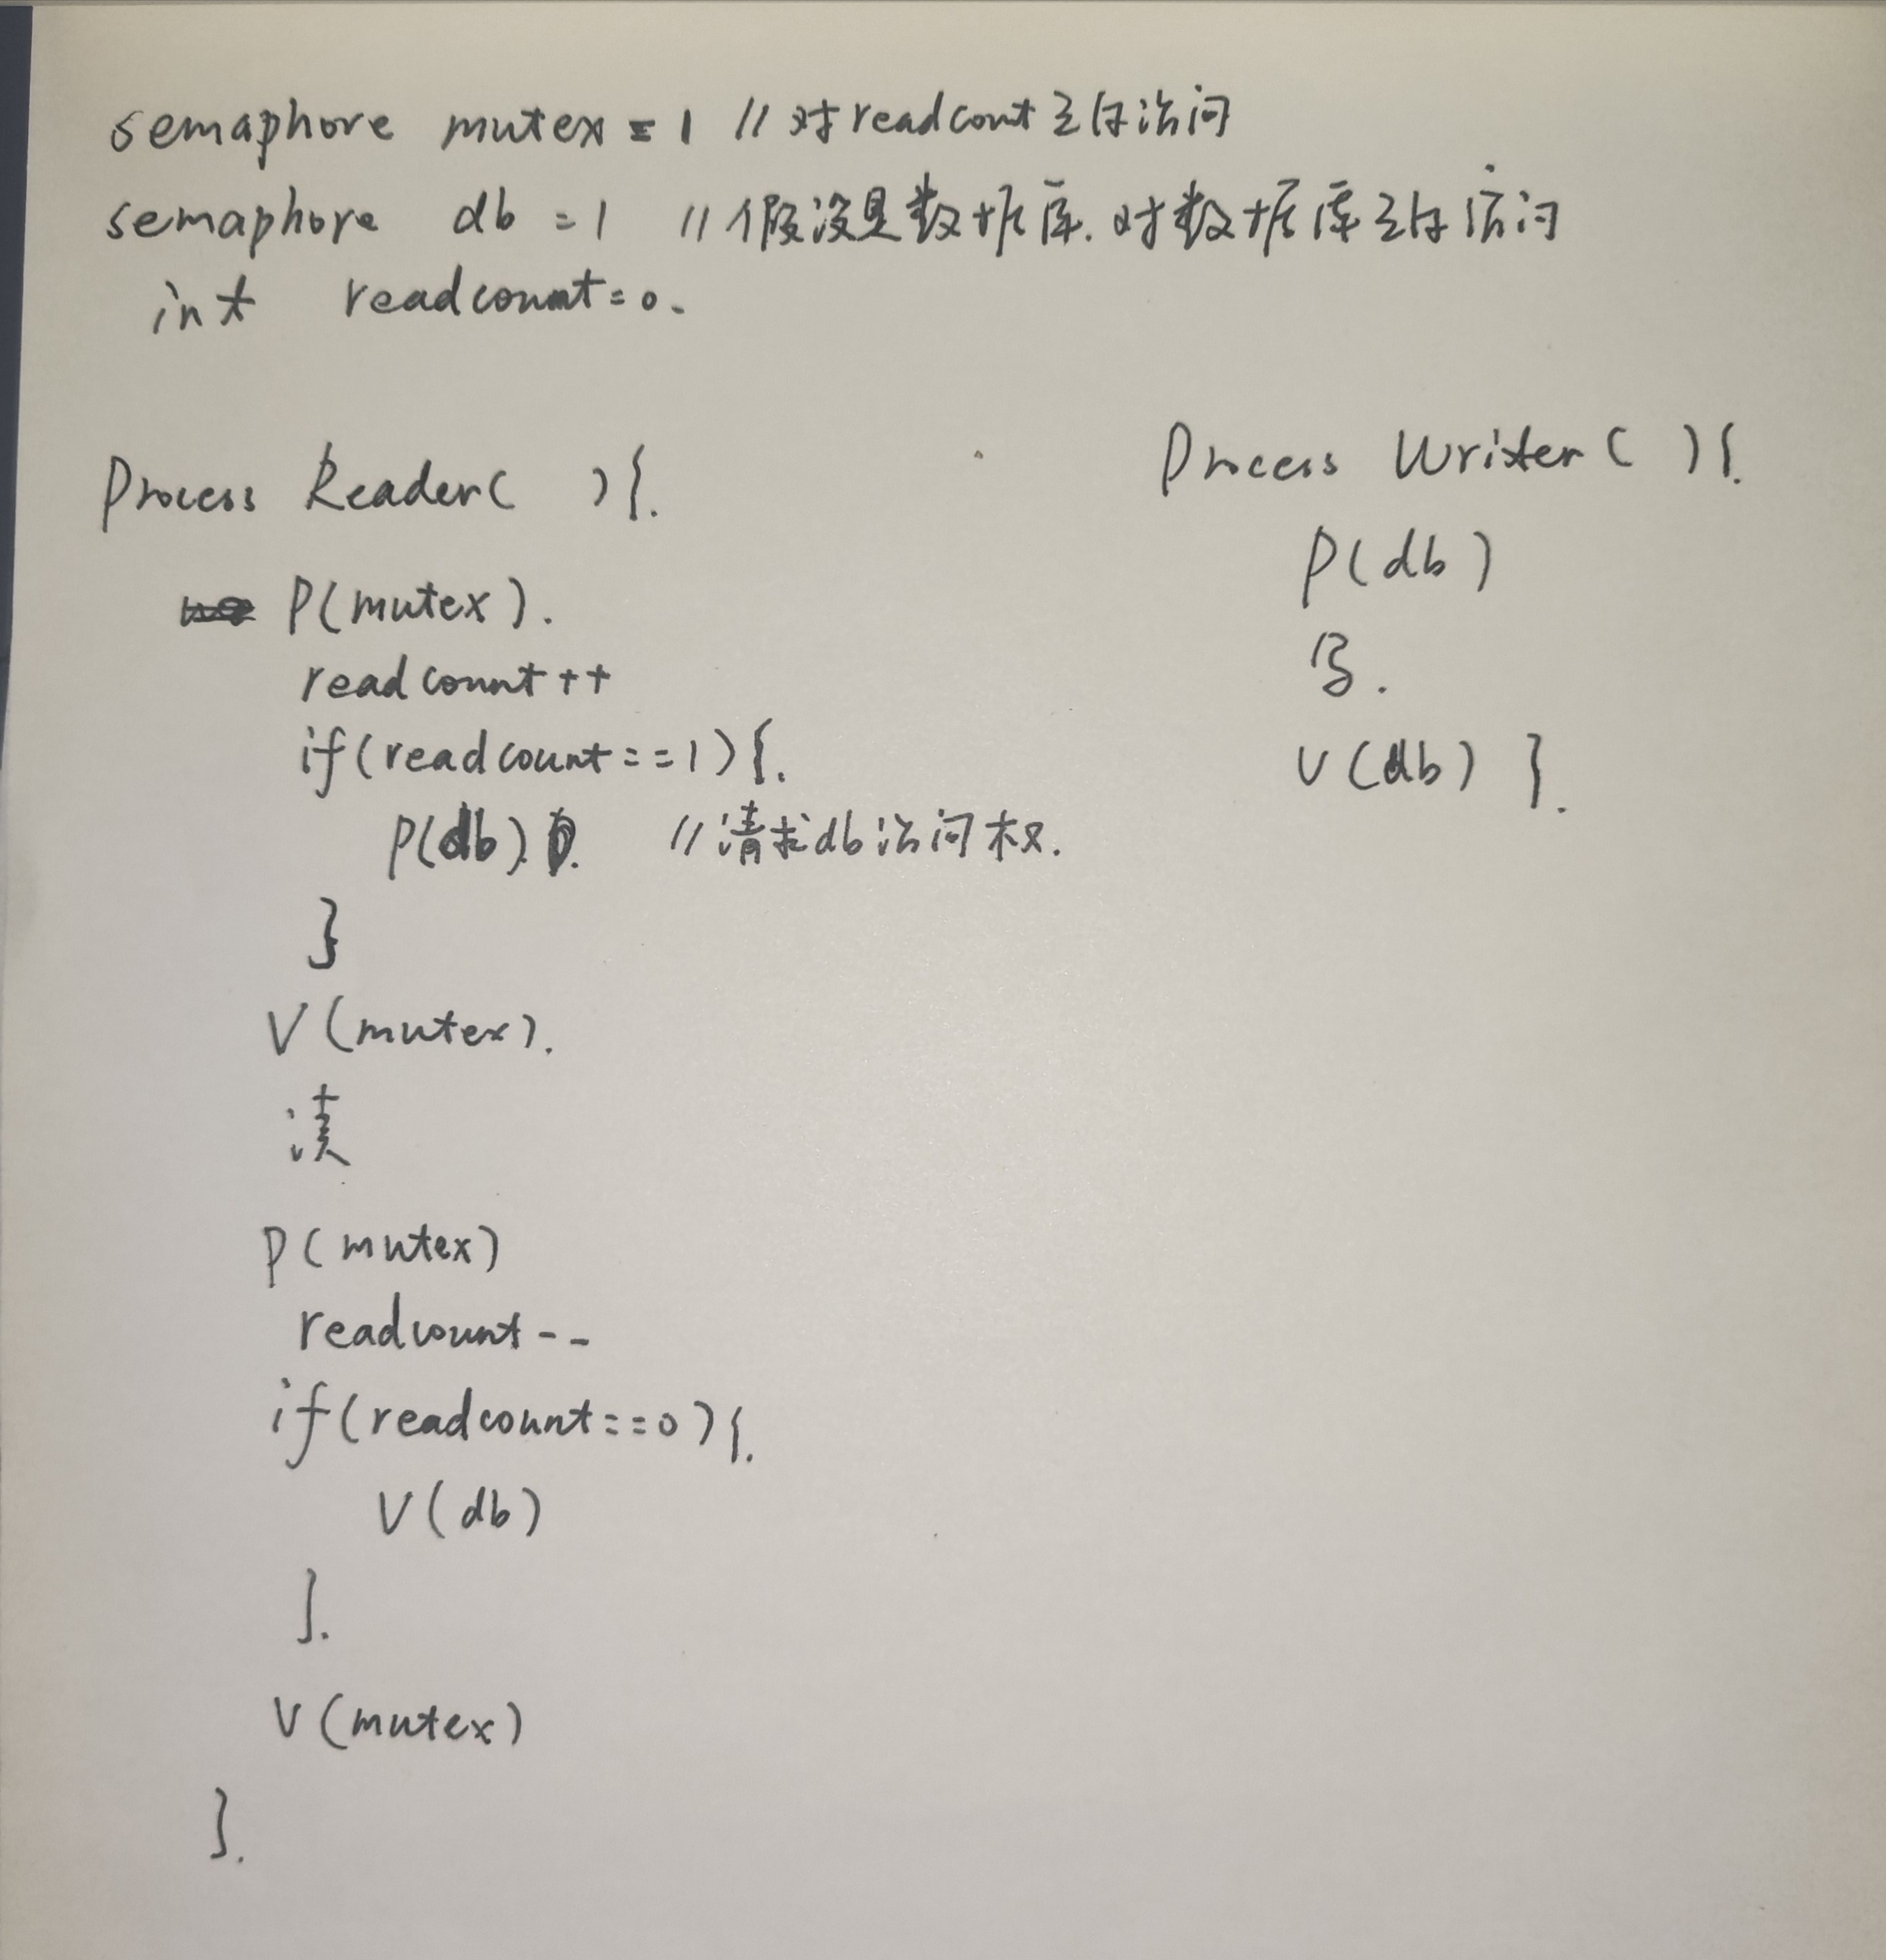 semaphore mutex = 1 // 对readcount互斥访问
semaphore db = 1 // 假设是数据库.对数据库互斥访问
int readcount=0.
Process Reader( ){.
P(mutex).
readcount++
if(readcount==1){.
P(db). // 请求db访问权.
}
V(mutex).
读
P(mutex)
readcount--
if(readcount==0){.
V(db)
}.
V(mutex)
}.
Process Writer( ){.
P(db)
写.
V(db) }.